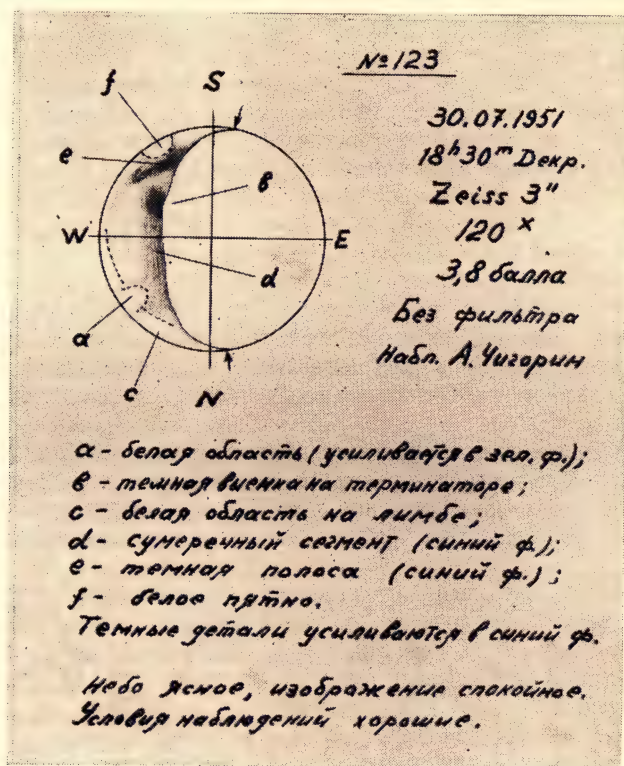 № 123
f
S
e
в
W
E
d
a
c
N
30.07.1951
18ʰ30ᵐ Декр.
Zeiss 3"
120 ˣ
3,8 балла
Без фильтра
Набл. А. Чигорин
a - белая область (усиливается в зел. ф.);
в - темная виемка на терминаторе;
c - белая область на лимбе;
d - сумеречный сегмент (синий ф.);
e - темная полоса (синий ф.);
f - белое пятно.
Темные детали усиливаются в синий ф.
Небо ясное, изображение спокойное.
Условия наблюдений хорошие.